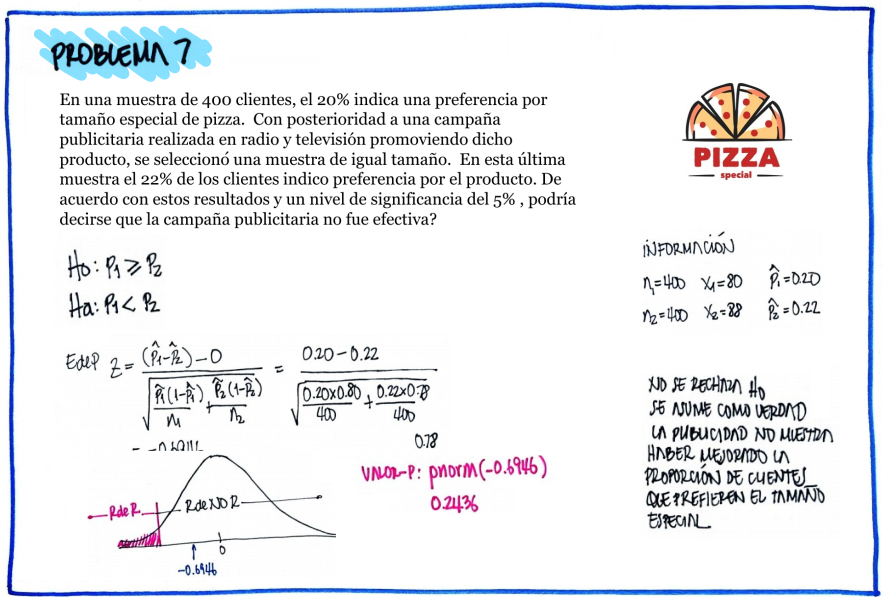 PROBLEMA 7
En una muestra de 400 clientes, el 20% indica una preferencia por
tamaño especial de pizza. Con posterioridad a una campaña
publicitaria realizada en radio y televisión promoviendo dicho
producto, se seleccionó una muestra de igual tamaño. En esta última
muestra el 22% de los clientes indico preferencia por el producto. De
acuerdo con estos resultados y un nivel de significancia del 5% , podría
decirse que la campaña publicitaria no fue efectiva?
PIZZA
special
Ho: P1 ≥ P2
Ha: P1 < P2
INFORMACIÓN
n1=400 x1=80 p̂1=0.20
n2=400 x2=88 p̂2=0.22
EdeP Z = ((p̂1-p̂2) - 0) / √(p̂1(1-p̂1)/n1 + p̂2(1-p̂2)/n2) = (0.20-0.22) / √(0.20x0.80/400 + 0.22x0.78/400)
0.78
VALOR-P: pnorm(-0.6946)
0.2436
RdeR
RdeNO R
0
-0.6946
NO SE RECHAZA Ho
SE ASUME COMO VERDAD
LA PUBLICIDAD NO MUESTRA
HABER MEJORADO LA
PROPORCIÓN DE CLIENTES
QUE PREFIEREN EL TAMAÑO
ESPECIAL